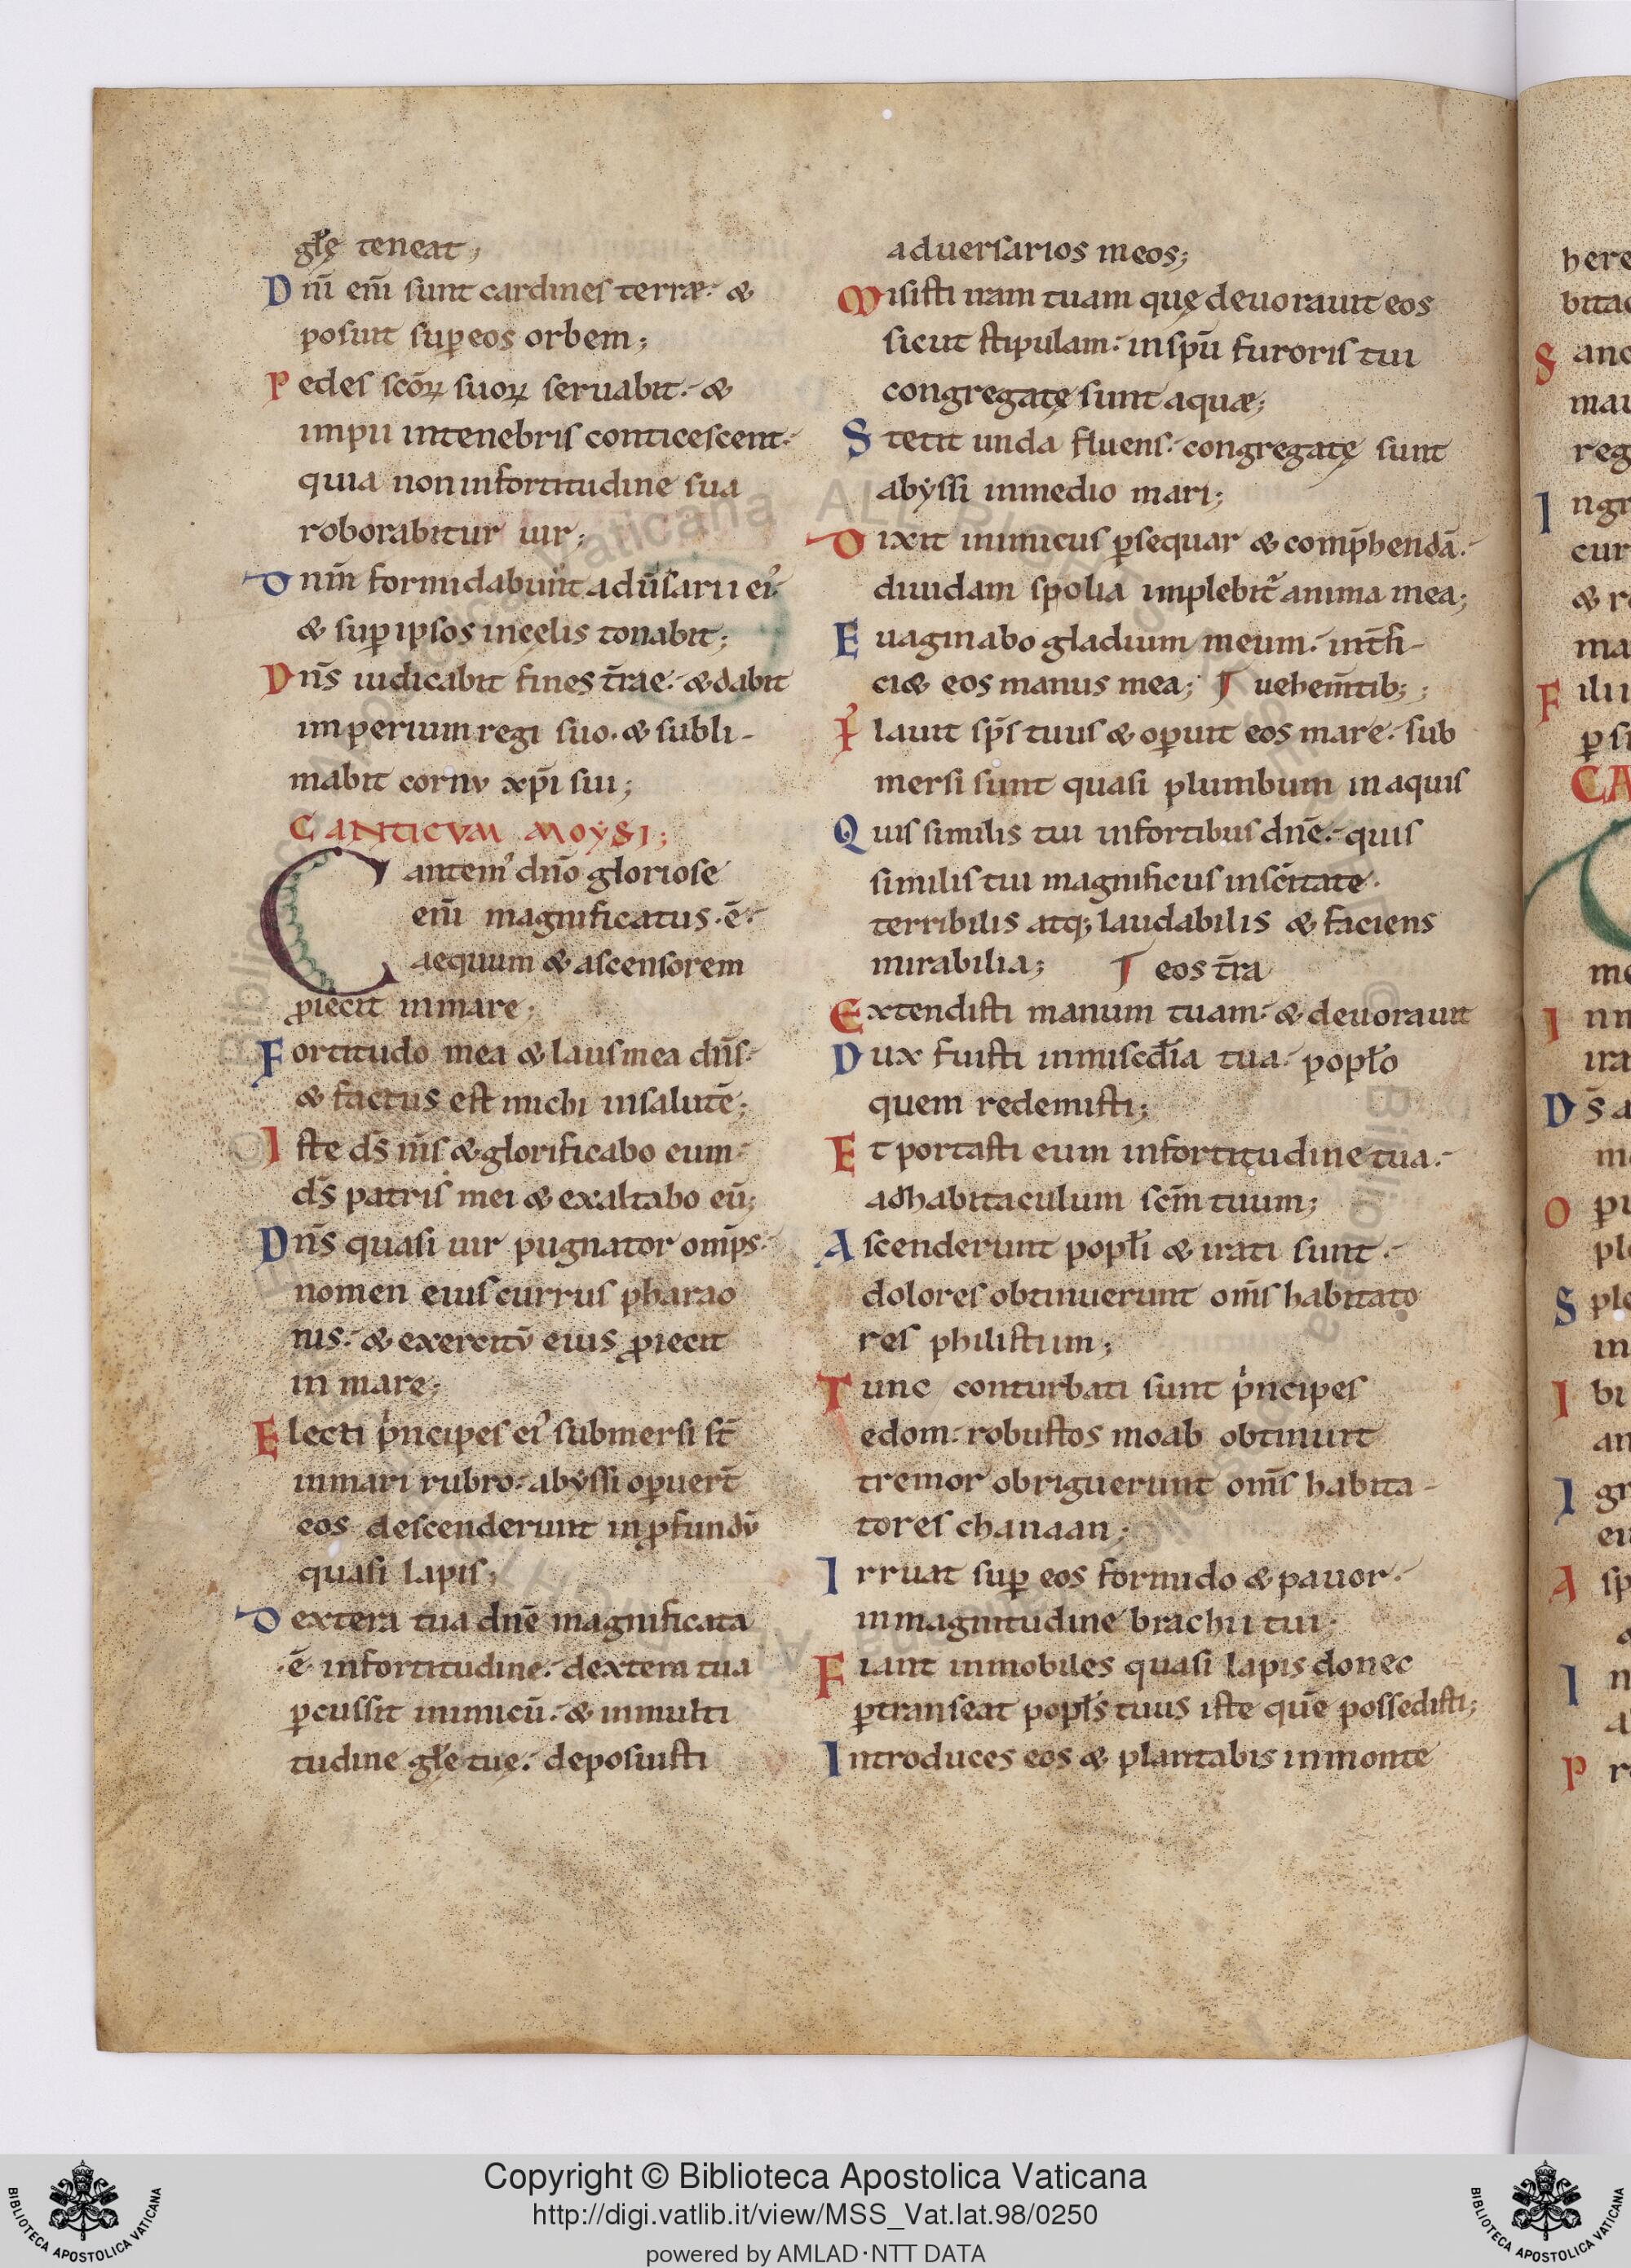 gl̄ę teneat;
Dn̄i em̄ sunt cardines terræ· &
posuit sup̱ eos orbem;
Pedes sc̄oꝝ suoꝝ seruabit·& 
impii intenebris conticescent·
quia non infortitudine sua
roborabitur uir;
Dnm̄ formidabunt adūsarii ei᾽
& sup̱ ipsos incęlis tonabit;
Dn̄s iudicabit fines t̄rae·& dabit
imperium regi suo·& subli-
mabit cornv xp̄i sui;
CANTICVM MOYSI;
Cantem᾽ dn̄o gloriose
em̄ magnificatus·ē·
aequum & ascensorem
ꝓiecit inmare;
Fortitudo mea & laus mea dn̄s·
& factus est michi insalutē;
Iste ds̄ m̄s & glorificabo eum·
ds̄ patris mei & exaltabo eū;
Dn̄s quasi uir pugnator om̄ps·
nomen eius currus pharao
nis·& exercitū eius ꝓiecit
in mare;
Electi p̍ncipes ei᾽ submersi st̄
inmari rubro·abẏssi oꝑuer̄t
eos descenderunt in ꝓfundū
quasi lapis;
Dextera tua dn̄e magnificata
·ē· infortitudine·dextera tua
ꝑcussit inimicū·& inmulti
tudine gl̄ę tuę·deposuisti
aduersarios meos;
Misisti iram tuam quę deuorauit eos
sicut stipulam·inspū furoris tui
congregatę sunt aquæ;
Stetit unda fluens·congregatę sunt
abẏssi inmedio mari;
Dixit inimicus ꝑsequar & comp̄hendā·
diuidam spolia implebit᾽ anima mea;
Euaginabo gladium meum·int̄fi-
ci& eos manus mea; uehem̄tib;;
Flauit sp̄s tuus & oꝑuit eos mare·sub
mersi sunt quasi plumbum in aquis
Quis similis tui infortibus dn̄e·quis
similis tui magnificus insc̄itate·
terribilis atq; laudabilis & faciens
mirabilia; eos t̄ra
Extendisti manum tuam·& deuorauit
Dux fuisti inmisc̄dia tua·popl̄o
quem redemisti;
Et portasti eum infortitudine tua·
adhabitaculum sc̄m tuum;
Ascenderunt popl̄i & irati sunt·
dolores obtinuerunt om̄s habitato
res philistiim;
Tunc conturbati sunt p̍ncipes
edom·robustos moab obtinuit
tremor obriguerunt om̄s habita-
tores chanaan;
Irruat sup̱ eos formido & pauor·
inmagnitudine brachii tui;
Fiant inmobiles quasi lapis donec
ꝑtranseat popl̄s tuus iste quē possedisti;
Introduces eos & plantabis inmonte
Copyright © Biblioteca Apostolica Vaticana
http://digi.vatlib.it/view/MSS_Vat.lat.98/0250
powered by AMLAD·NTT DATA
BIBLIOTECA APOSTOLICA VATICANA
BIBLIOTECA APOSTOLICA VATICANA